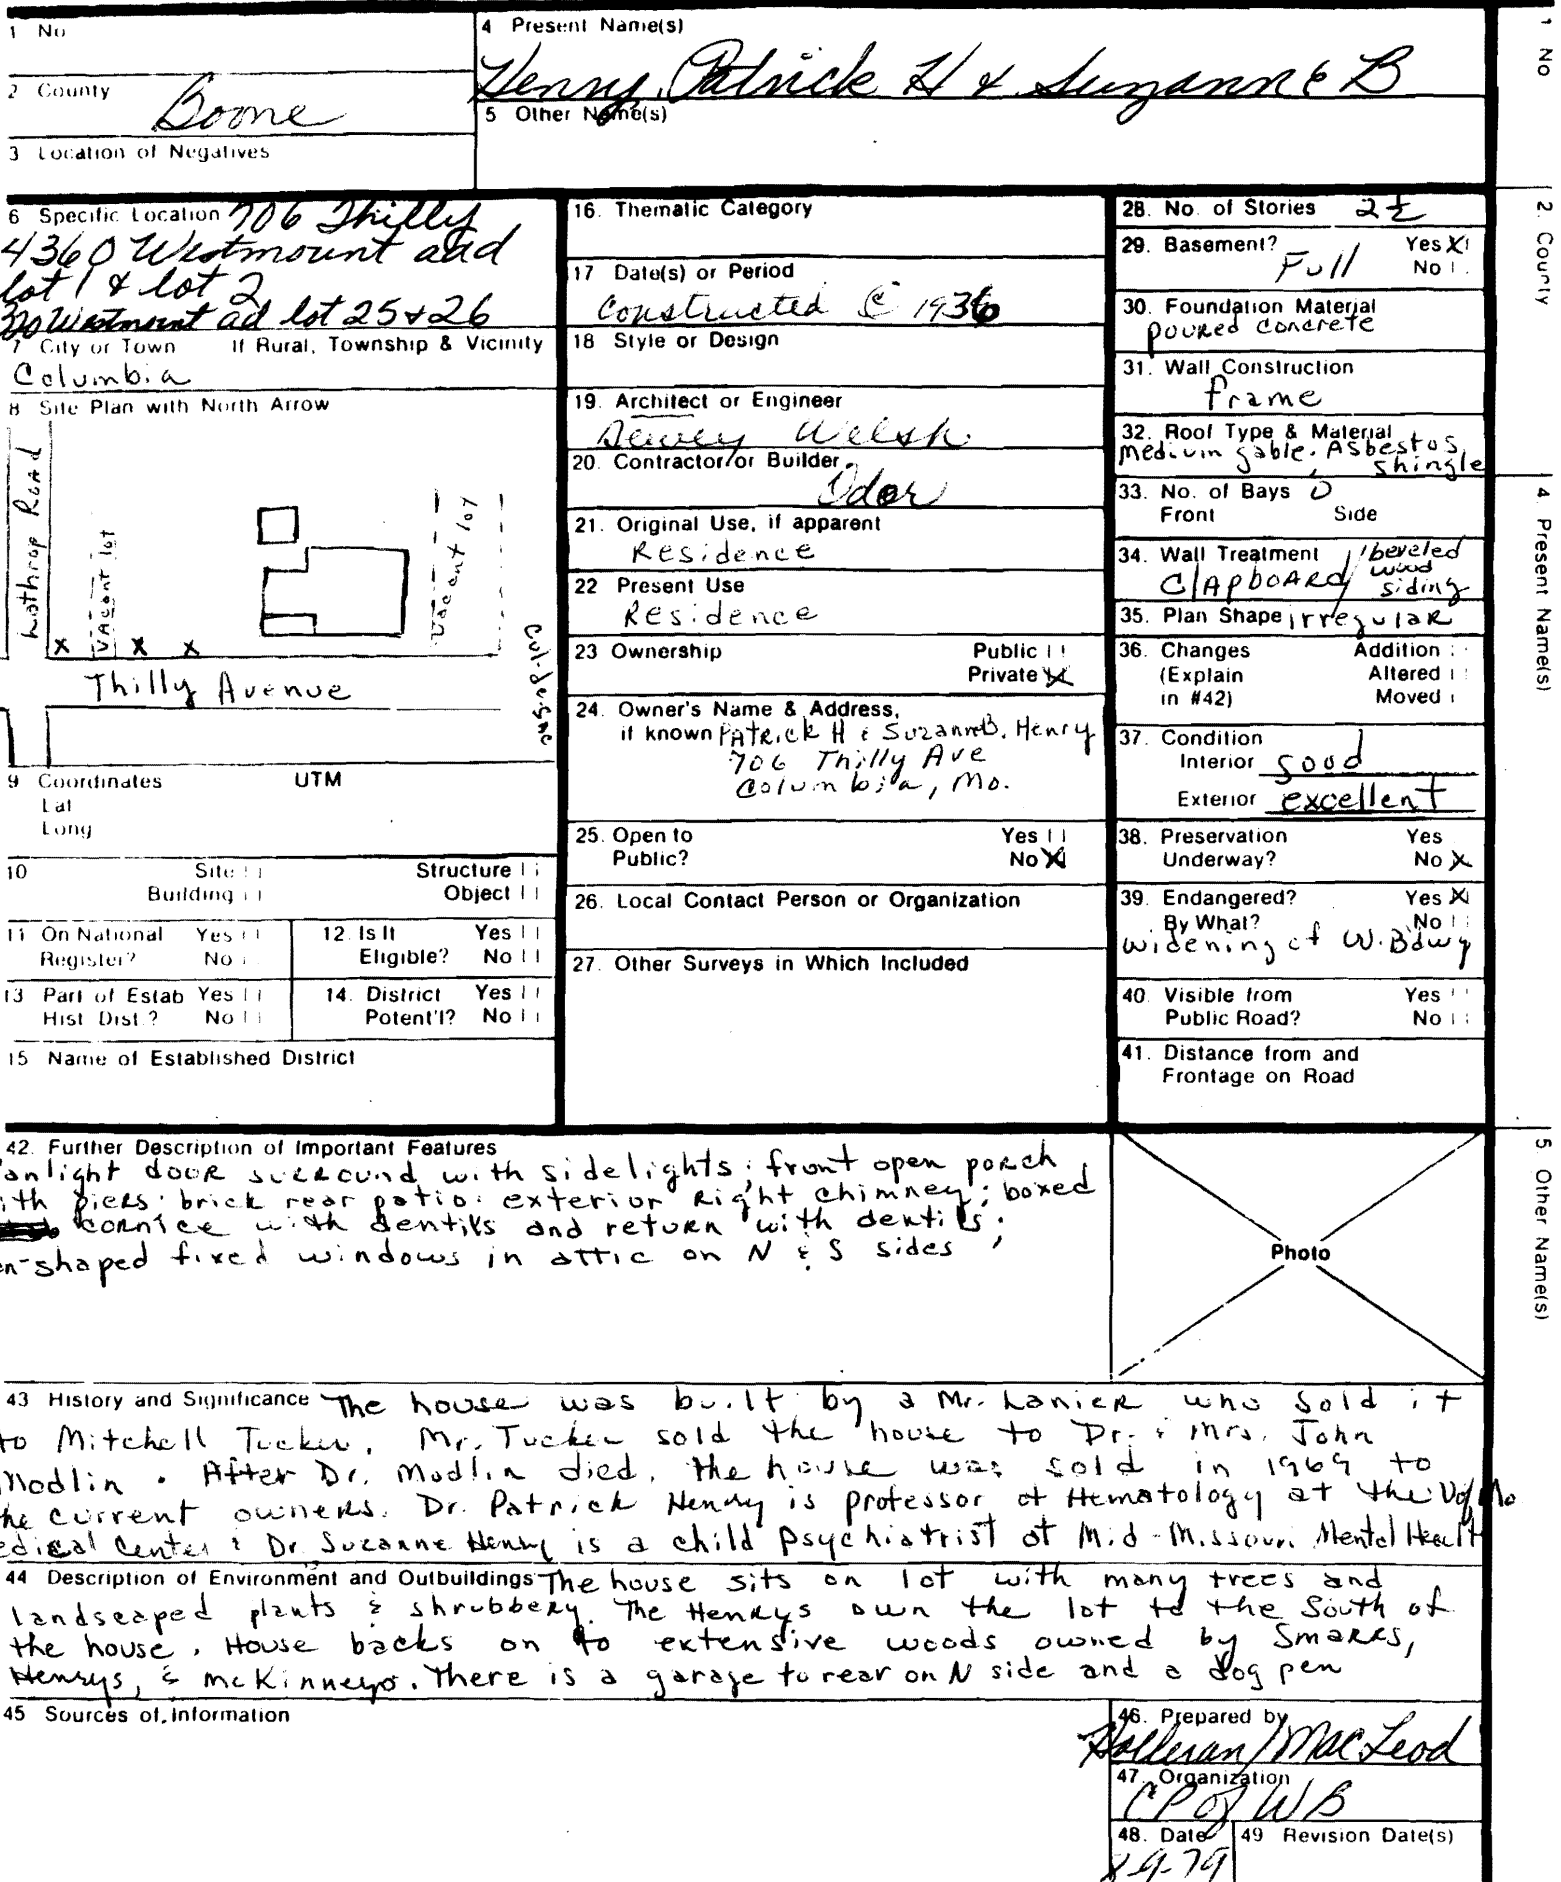 1 No
4 Present Name(s)
Henry, Patrick H & Suzanne B
2 County
Boone
5 Other Name(s)
3 Location of Negatives
6 Specific Location 706 Thilly
4360 Westmount add
lot 1 & lot 2
Westmount ad lot 25 & 26
7 City or Town If Rural, Township & Vicinity
Columbia
8 Site Plan with North Arrow
Lathrop Road
Vacant lot
Vacant lot
x x x
Thilly Avenue
Cul-de-sac
9 Coordinates UTM
Lat
Long
10 Site Structure
Building Object
11 On National Register? Yes No
12. Is It Eligible? Yes No
13 Part of Estab Hist Dist.? Yes No
14. District Potent'l? Yes No
15 Name of Established District
16. Thematic Category
17 Date(s) or Period
Constructed C 1936
18 Style or Design
19. Architect or Engineer
Dewey Welsh
20. Contractor or Builder
Odor
21. Original Use, if apparent
Residence
22 Present Use
Residence
23 Ownership Public
Private X
24. Owner's Name & Address,
if known Patrick H & Suzanne B. Henry
706 Thilly Ave
Columbia, Mo.
25. Open to Yes
Public? No X
26. Local Contact Person or Organization
27. Other Surveys in Which Included
28. No. of Stories 2½
29. Basement? Yes X
Full No
30. Foundation Material
poured concrete
31. Wall Construction
frame
32. Roof Type & Material
medium gable. Asbestos
shingle
33. No. of Bays
Front Side
34. Wall Treatment
Clapboard / beveled
wood
siding
35. Plan Shape irregular
36. Changes Addition
(Explain Altered
in #42) Moved
37. Condition
Interior good
Exterior excellent
38. Preservation Yes
Underway? No X
39. Endangered? Yes X
By What? No
widening of W. Bdwy
40. Visible from Yes
Public Road? No
41. Distance from and
Frontage on Road
42. Further Description of Important Features
anlight door surround with sidelights; front open porch
ith piers; brick rear patio; exterior right chimney; boxed
cornice with dentils and return with dentils;
n-shaped fixed windows in attic on N & S sides
Photo
43 History and Significance The house was built by a Mr. Lanier who sold it
to Mitchell Tucker. Mr. Tucker sold the house to Dr. & Mrs. John
Modlin. After Dr. Modlin died, the house was sold in 1969 to
he current owners. Dr. Patrick Henry is professor of Hematology at the U of Mo
edical Center & Dr. Suzanne Henry is a child psychiatrist at Mid-Missouri Mental Healt
44 Description of Environment and Outbuildings The house sits on lot with many trees and
landscaped plants & shrubbery. The Henrys own the lot to the South of
the house. House backs on to extensive woods owned by Smarrs,
Henrys, & McKinneys. There is a garage to rear on N side and a dog pen
45 Sources of Information
46. Prepared by
Holleran/MacLeod
47. Organization
CP of WB
48. Date
8-9-79
49 Revision Date(s)
1 No
2. County
4 Present Name(s)
5 Other Name(s)